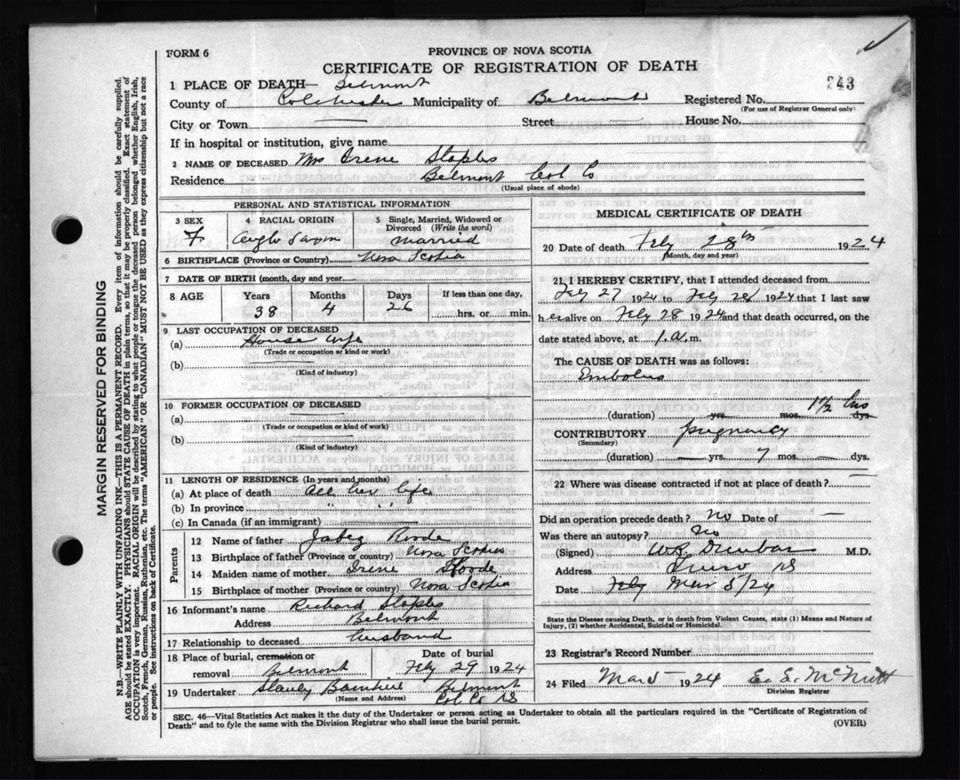 FORM 6
PROVINCE OF NOVA SCOTIA
CERTIFICATE OF REGISTRATION OF DEATH
243
1 PLACE OF DEATH— Belmont
County of Colchester Municipality of Belmont Registered No.
(For use of Registrar General only)
City or Town — Street — House No.
If in hospital or institution, give name
2 NAME OF DECEASED Mrs Irene Staples
Residence Belmont Col Co
(Usual place of abode)
PERSONAL AND STATISTICAL INFORMATION
3 SEX
F
4 RACIAL ORIGIN
Anglo Saxon
5 Single, Married, Widowed or
Divorced (Write the word)
Married
6 BIRTHPLACE (Province or Country) Nova Scotia
7 DATE OF BIRTH (month, day and year)
8 AGE Years Months Days If less than one day,
38 4 26 hrs. or min.
9 LAST OCCUPATION OF DECEASED
(a) House wife
(Trade or occupation or kind or work)
(b)
(Kind of industry)
10 FORMER OCCUPATION OF DECEASED
(a)
(Trade or occupation or kind of work)
(b)
(Kind of industry)
11 LENGTH OF RESIDENCE (In years and months)
(a) At place of death All her life
(b) In province " " "
(c) In Canada (if an immigrant)
Parents
12 Name of father Jabez
13 Birthplace of father (Province or country) Nova Scotia
14 Maiden name of mother Irene
15 Birthplace of mother (Province or country) Nova Scotia
16 Informant's name Richard Staples
Address Belmont
17 Relationship to deceased Husband
18 Place of burial, cremation or
removal Belmont
Date of burial
Feby 29 1924
19 Undertaker Stanley Belmont
(Name and Address) Col Co NS
MEDICAL CERTIFICATE OF DEATH
20 Date of death Feby 28th 1924
(Month, day and year)
21 I HEREBY CERTIFY, that I attended deceased from
Feby 27 1924 to Feby 28 1924 that I last saw
her alive on Feby 28 1924 and that death occurred, on
date stated above, at 1.a.m.
The CAUSE OF DEATH was as follows:
Embolus
(duration) yrs. mos. 1 1/2 hrs dys.
CONTRIBUTORY pregnancy
(Secondary)
(duration) — yrs. 7 mos. — dys.
22 Where was disease contracted if not at place of death?
Did an operation precede death? No Date of —
Was there an autopsy? No
(Signed) W.R. Dunbar M.D.
Address Truro NS
Date Feby Mar 5/24
State the Disease causing Death, or in death from Violent Causes, state (1) Means and Nature of
Injury, (2) whether Accidental, Suicidal or Homicidal.
23 Registrar's Record Number
24 Filed Mar 5 1924 E. E. McNutt
Division Registrar
SEC. 46—Vital Statistics Act makes it the duty of the Undertaker or person acting as Undertaker to obtain all the particulars required in the "Certificate of Registration of
Death" and to fyle the same with the Division Registrar who shall issue the burial permit.
(OVER)
MARGIN RESERVED FOR BINDING
N.B.—WRITE PLAINLY WITH UNFADING INK—THIS IS A PERMANENT RECORD. Every item of information should be carefully supplied.
AGE should be stated EXACTLY. PHYSICIANS should STATE CAUSE OF DEATH in plain terms, so that it may be properly classified. Exact statement of
OCCUPATION is very important. RACIAL ORIGIN will be described by stating to what people or tongue the deceased person belonged whether English, Irish,
Scotch, French, German, Russian, Ruthenian, etc. The terms "AMERICAN" OR "CANADIAN" MUST NOT BE USED as they express citizenship but not a race
or people. See instructions on back of Certificate.